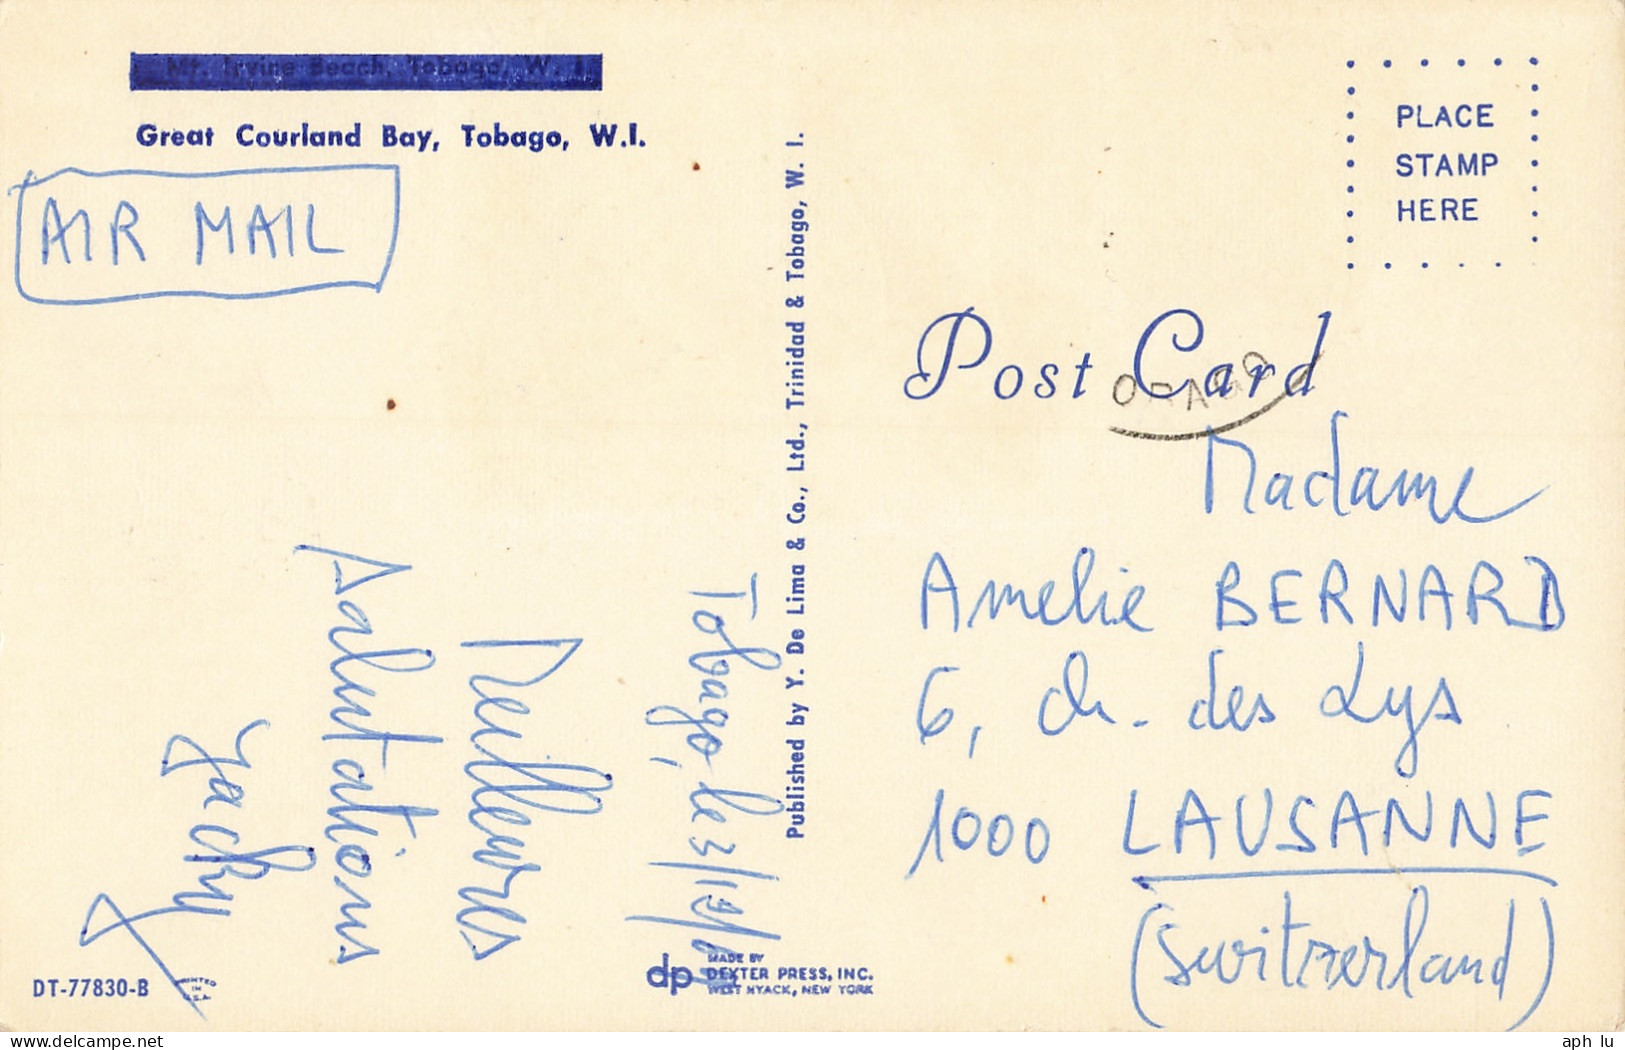 Mt. Irvine Beach, Tobago, W. I.
Great Courland Bay, Tobago, W.I.
AIR MAIL
Tobago, le
Meilleures
Salutations
Jacky
DT-77830-B
Published by Y. De Lima & Co., Ltd., Trinidad & Tobago, W. I.
dp MADE BY
DEXTER PRESS, INC.
WEST NYACK, NEW YORK
PLACE
STAMP
HERE
Post Card
Madame
Amelie BERNARD
6, ch. des Lys
1000 LAUSANNE
(Switzerland)
delcampe.net
aph lu